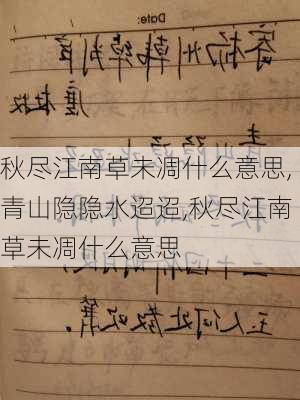 Date:
寄扬州韩绰判官
杜牧
青山隐隐
秋尽江南草未凋什么意思,
青山隐隐水迢迢,秋尽江南
草未凋什么意思
二十四桥明月夜
玉人何处教吹箫。